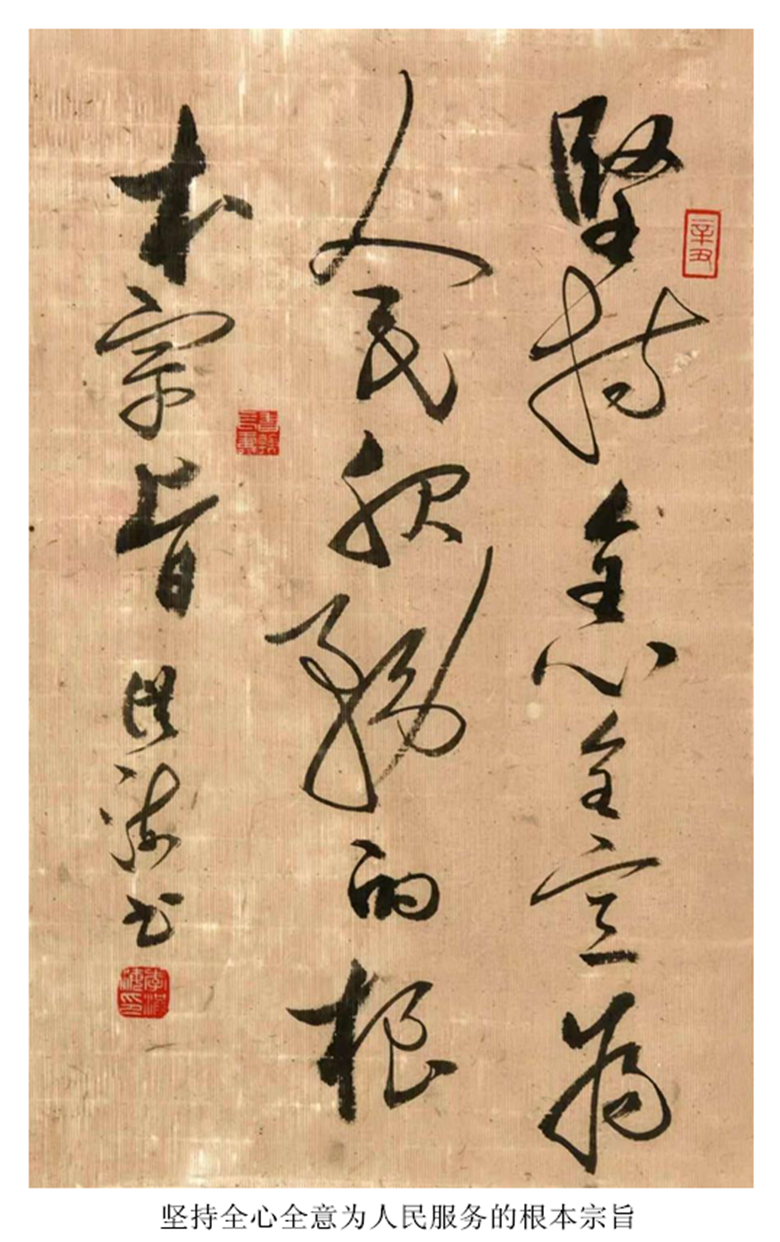 堅持全心全意為
人民服務的根
本宗旨
洪海書
辛丑
坚持全心全意为人民服务的根本宗旨